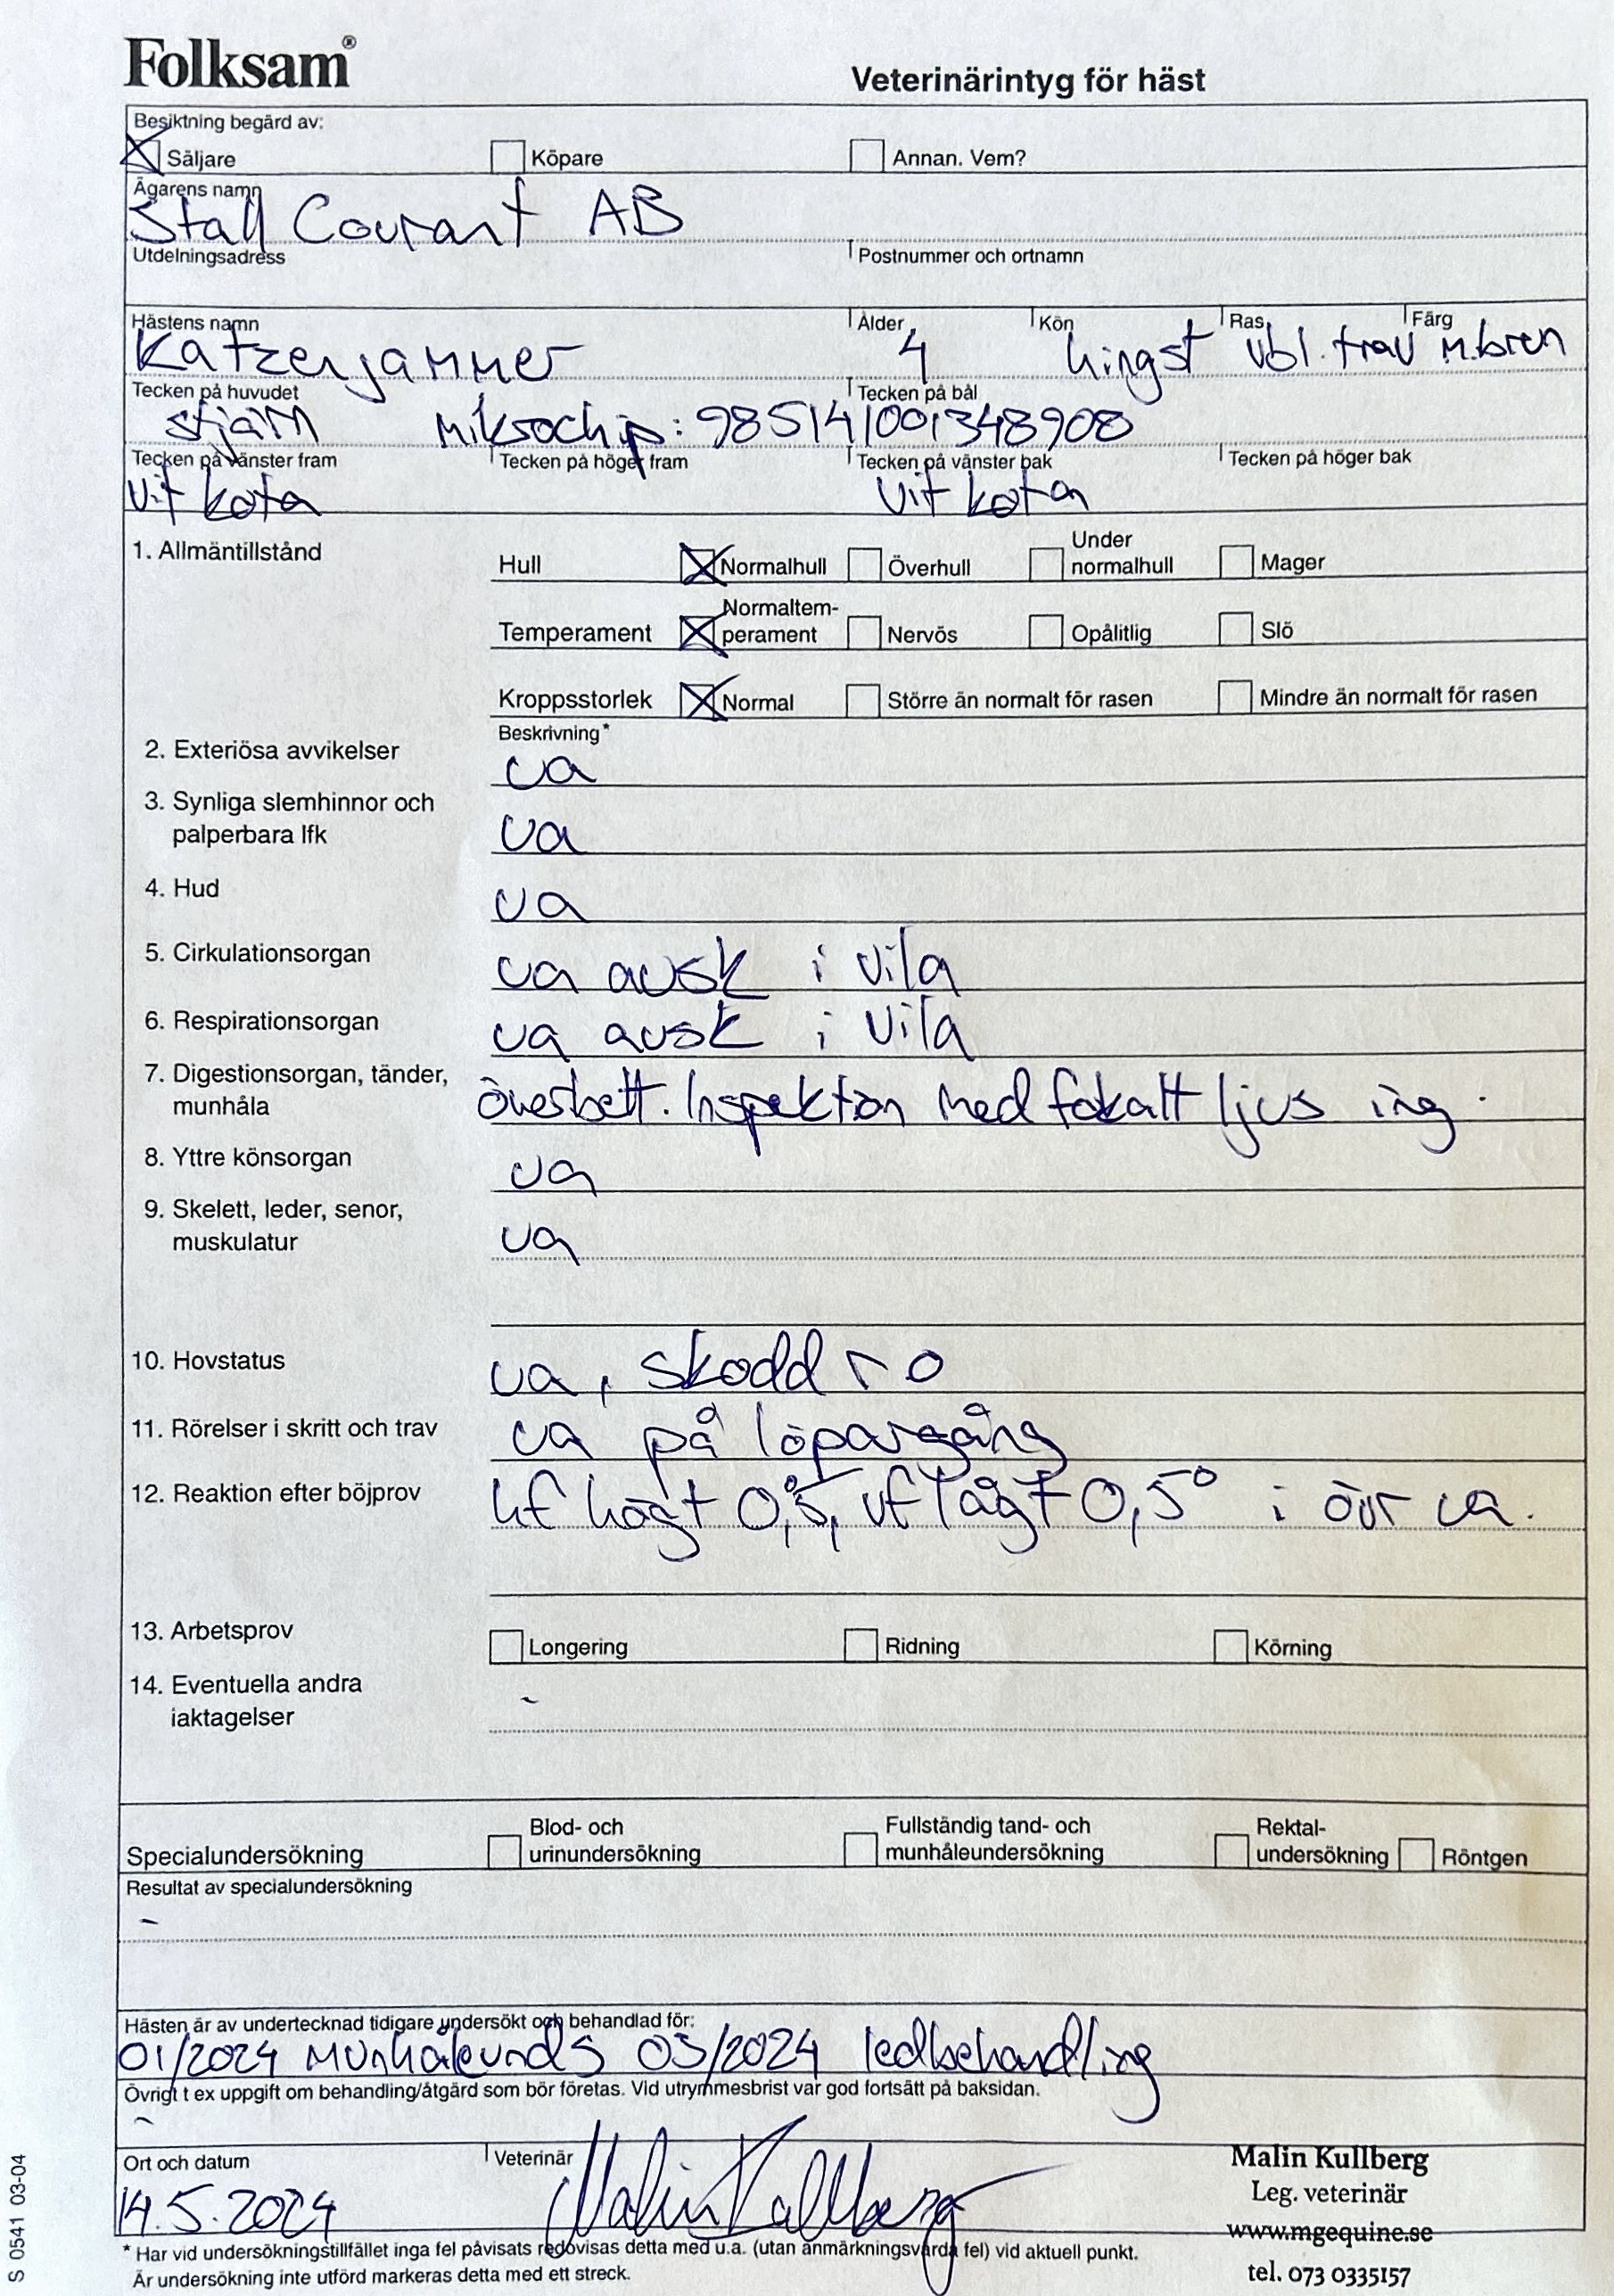 Folksam®
Veterinärintyg för häst
Besiktning begärd av:
Säljare Köpare Annan. Vem?
Ägarens namn
Stall Courant AB
Utdelningsadress Postnummer och ortnamn
Hästens namn Ålder Kön Ras Färg
Katzenjammer 4 hingst vbl. trav m.brun
Tecken på huvudet Tecken på bål
stjärn Mikrochip: 985141001348908
Tecken på vänster fram Tecken på höger fram Tecken på vänster bak Tecken på höger bak
vit kota vit kota
1. Allmäntillstånd Hull Normalhull Överhull Under normalhull Mager
Temperament Normaltem-perament Nervös Opålitlig Slö
Kroppsstorlek Normal Större än normalt för rasen Mindre än normalt för rasen
Beskrivning*
2. Exteriösa avvikelser ua
3. Synliga slemhinnor och
palperbara lfk ua
4. Hud ua
5. Cirkulationsorgan ua ausk i vila
6. Respirationsorgan ua ausk i vila
7. Digestionsorgan, tänder,
munhåla överbett. Inspektion med fokalt ljus ing.
8. Yttre könsorgan ua
9. Skelett, leder, senor,
muskulatur ua
10. Hovstatus ua, skodd r o
11. Rörelser i skritt och trav ua på löpargång
12. Reaktion efter böjprov hf högt 0,5°, vf lågt 0,5° i övr ua.
13. Arbetsprov Longering Ridning Körning
14. Eventuella andra
iaktagelser -
Specialundersökning Blod- och urinundersökning Fullständig tand- och munhåleundersökning Rektal-undersökning Röntgen
Resultat av specialundersökning
-
Hästen är av undertecknad tidigare undersökt och behandlad för:
01/2024 munhåleunds 03/2024 ledbehandling
Övrigt t ex uppgift om behandling/åtgärd som bör företas. Vid utrymmesbrist var god fortsätt på baksidan.
-
Ort och datum Veterinär
14.5.2024 Malin Kullberg
Malin Kullberg
Leg. veterinär
www.mgequine.se
tel. 073 0335157
* Har vid undersökningstillfället inga fel påvisats redovisas detta med u.a. (utan anmärkningsvärda fel) vid aktuell punkt.
Är undersökning inte utförd markeras detta med ett streck.
S 0541 03-04